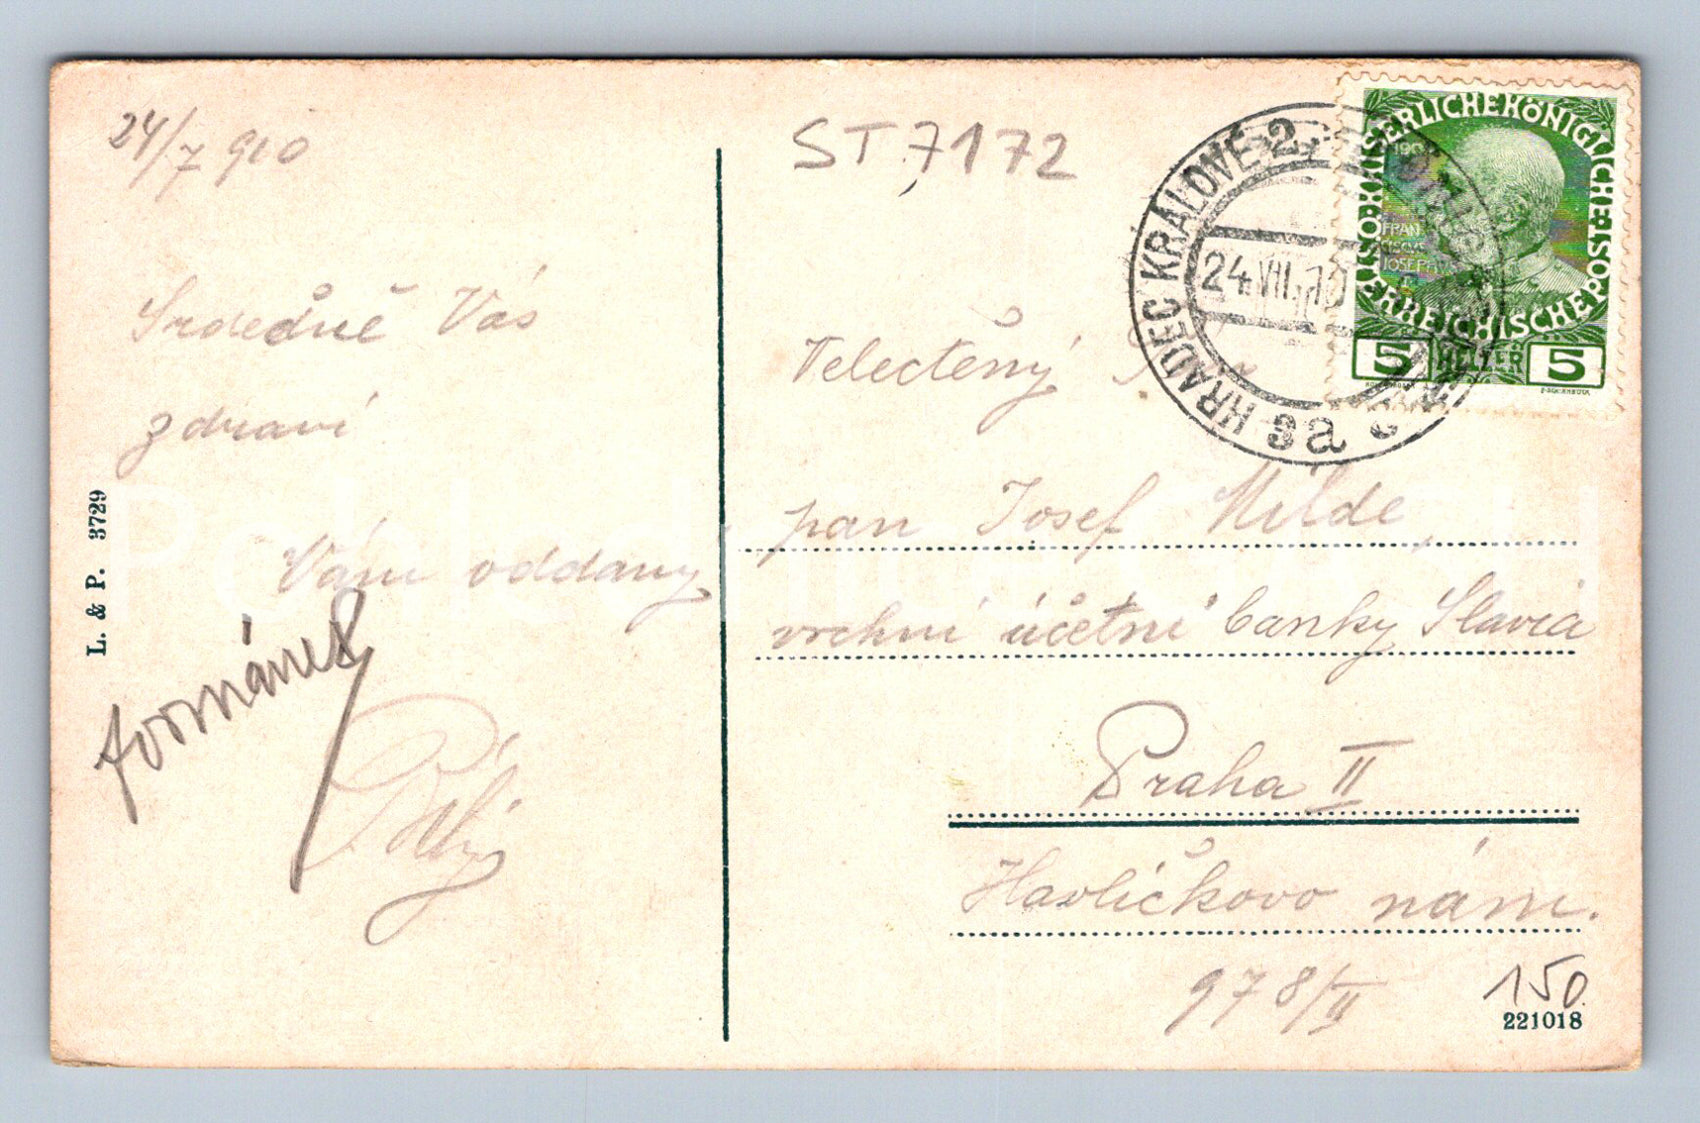 24/7 910
ST 7172
Srdečně Vás
zdraví
Vám oddaný
L. & P. 3729
HRADEC KRÁLOVÉ 2
24.VII.10
8a
KAISERLICHE KÖNIGLICHE ÖSTERREICHISCHE POST
FRAN
CISCVS
JOSEPHVS
5 HELLER 5
Velectěný Pan
pan Josef Milde,
vrchní účetní banky Slavia
Praha II
Havlíčkovo nám.
978/II
150
221018